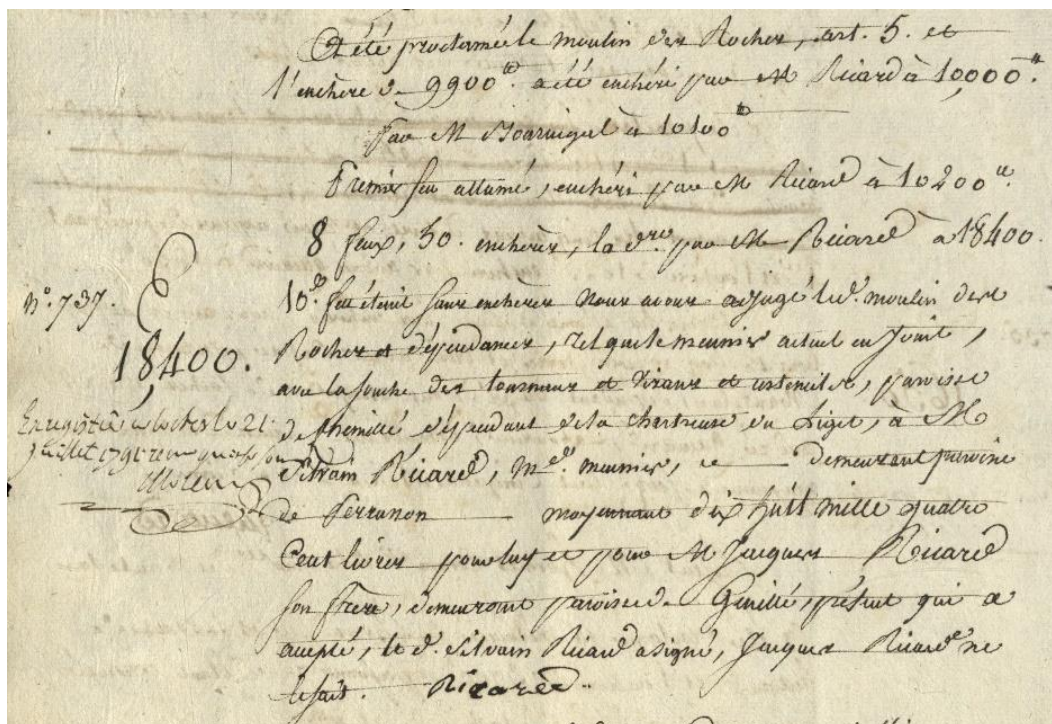 A été proclamé le moulin des Roches, art. 5. et
l'enchère de 9900tt. a été enchéri par M Ricard à 10,000tt.
Par M à 10100tt
Premier feu allumé, enchéri par M Ricard à 10200tt.
8 feux, 50. enchères, la dre. par M Ricard à 18400.
N°. 737.
18,400.
Enregistré à Loches le 21
Juillet 1791 reçu quinze sous
10e. feu éteint sans enchères Nous avons adjugé led. moulin des
Roches et dépendances, tel que le meunier actuel en Jouit,
avec la souche des tournants et virans et ustensiles, paroisse
de Chemillé dépendant de la chartreuse du Liget, à M
Silvain Ricard, md. meunier, ce demeurant paroisse
de Ferranon moyennant dix huit mille quatre
Cent livres pour luy et pour M Jacques Ricard
son frère, demeurant paroisse de Genillé, présent qui a
accepté, led. Silvain Ricard a signé, Jacques Ricard ne
le sait. Ricard